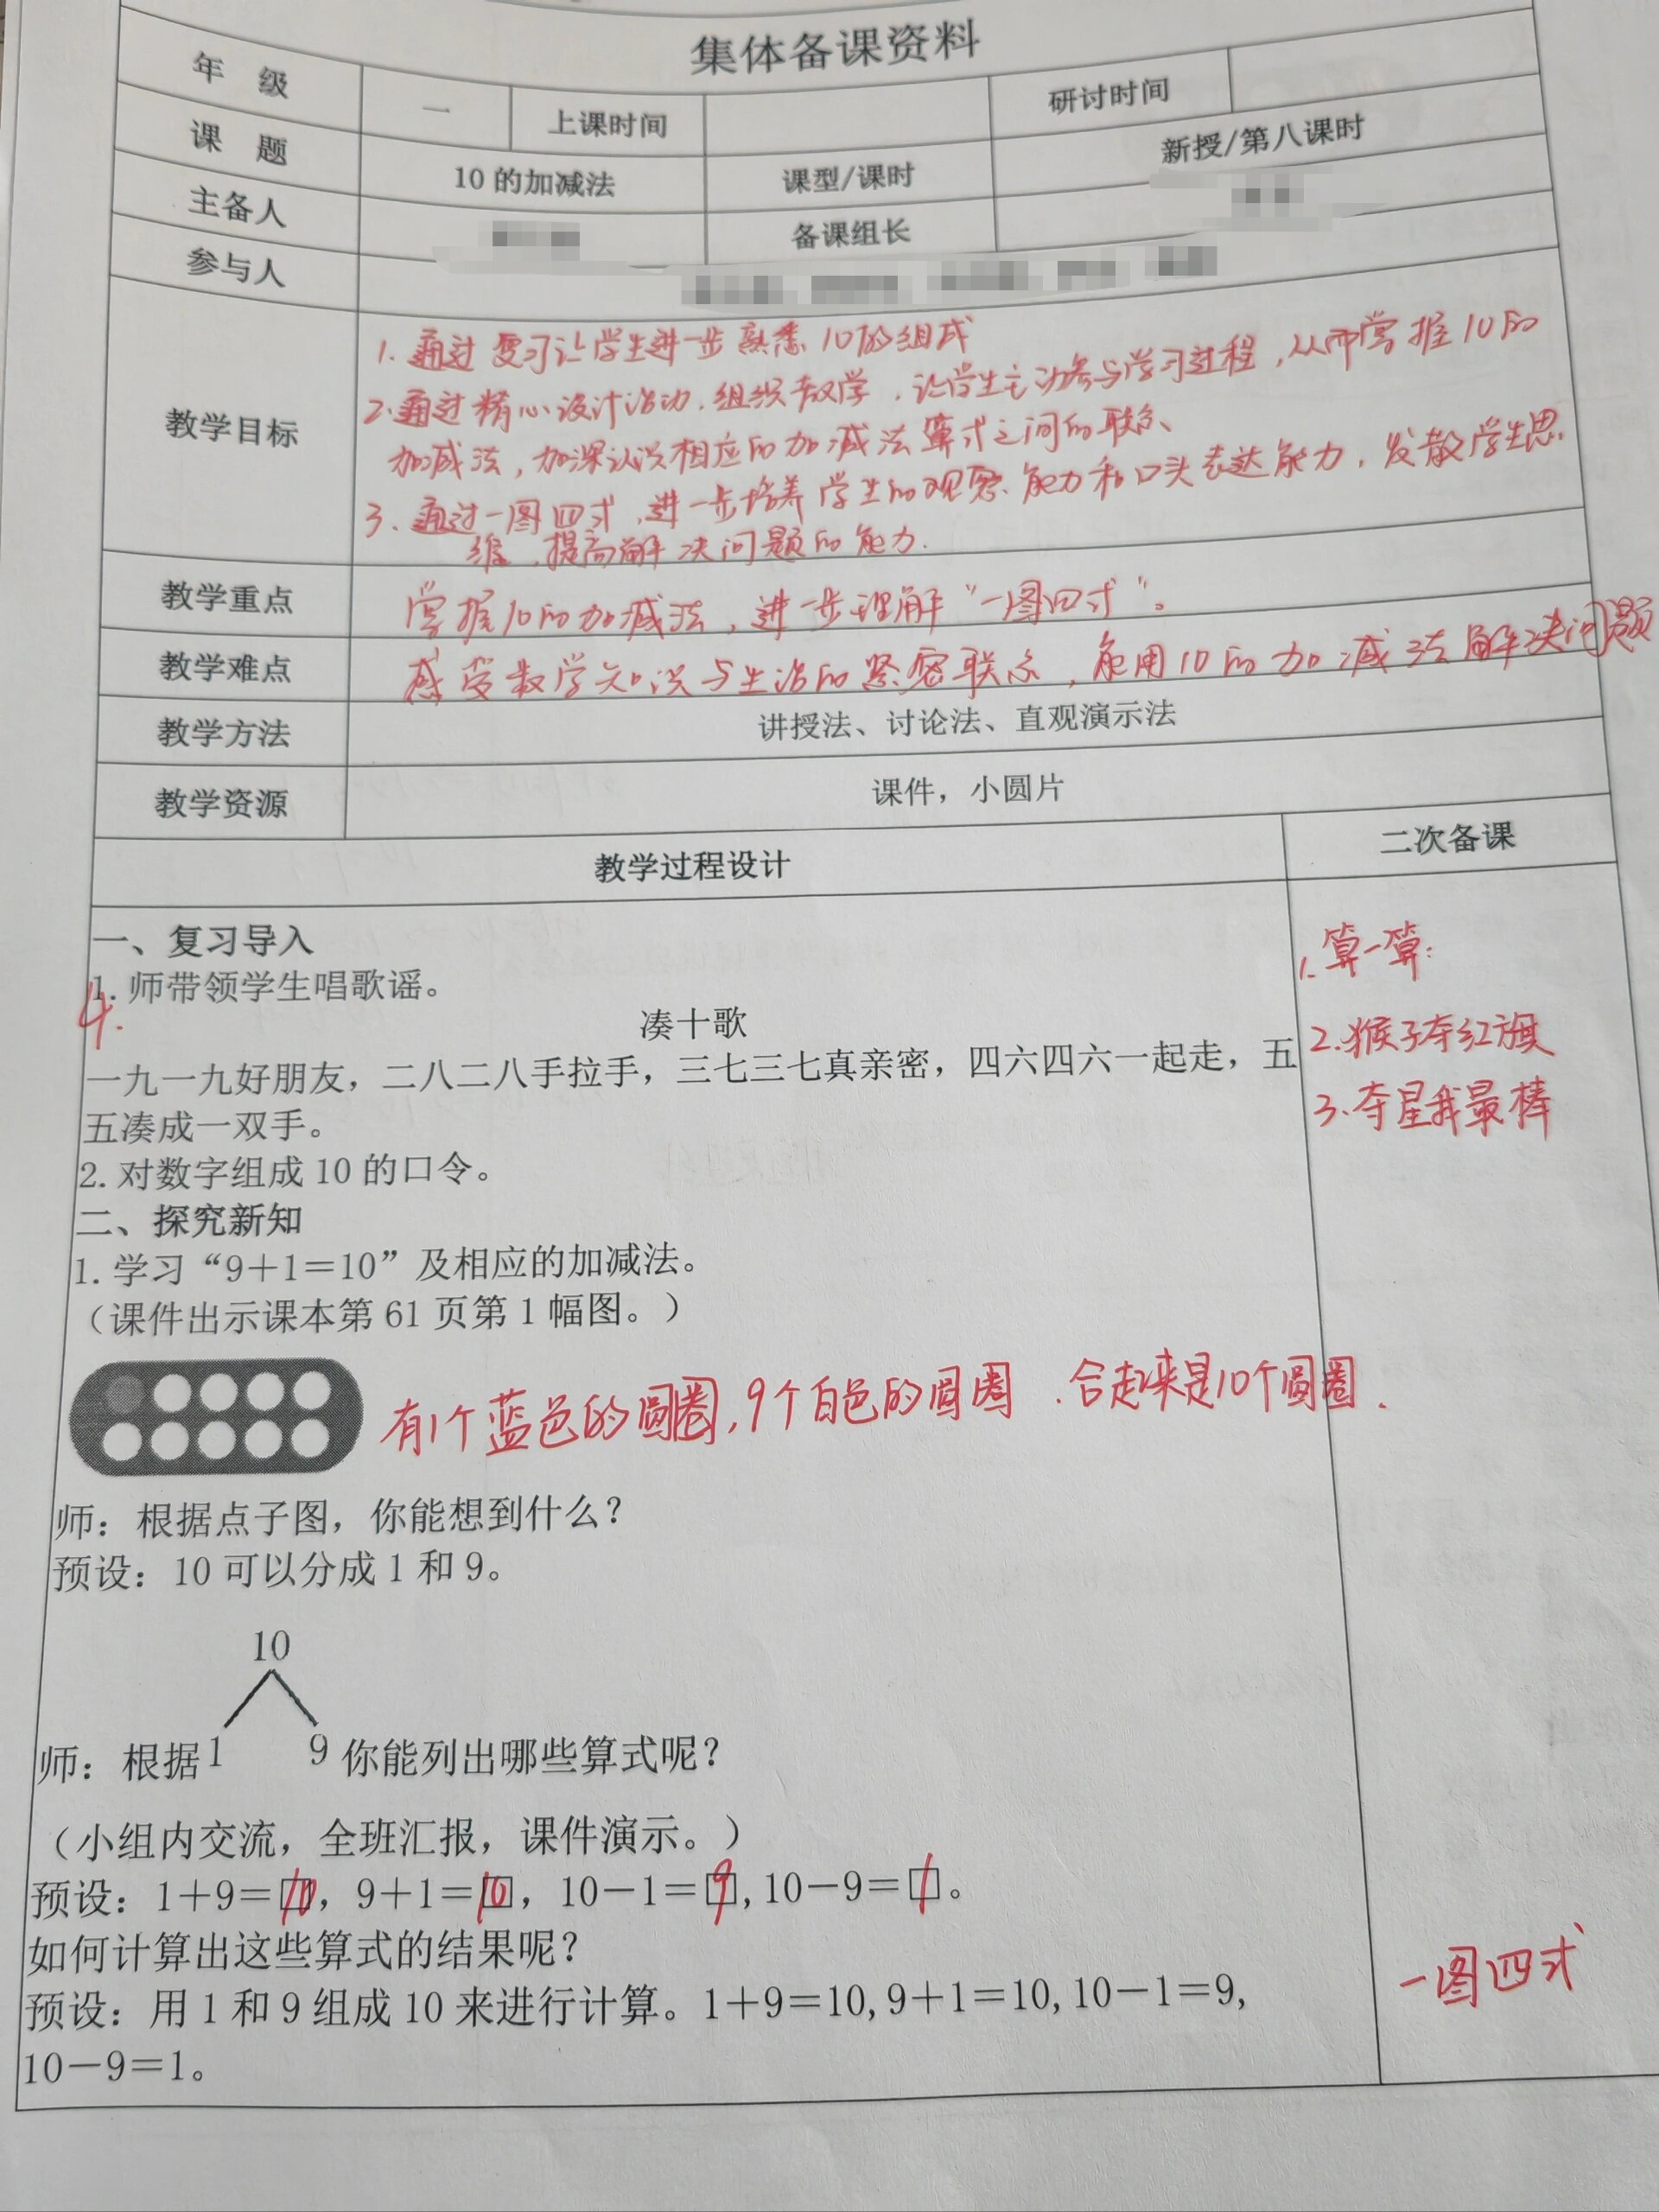 集体备课资料
年 级 一 上课时间 研讨时间
课 题 10 的加减法 课型/课时 新授/第八课时
主备人 备课组长
参与人
教学目标
1. 通过复习让学生进一步熟悉10的组成
2. 通过精心设计活动,组织教学,让学生主动参与学习过程,从而掌握10的
加减法,加深认识相应的加减法算式之间的联系、
3. 通过一图四式,进一步培养学生的观察能力和口头表达能力,发散学生思
维,提高解决问题的能力.
教学重点 掌握10的加减法,进一步理解“一图四式”。
教学难点 感受数学知识与生活的紧密联系,能用10的加减法解决问题
教学方法 讲授法、讨论法、直观演示法
教学资源 课件，小圆片
教学过程设计 二次备课
一、复习导入
1. 师带领学生唱歌谣。
4.
凑十歌
一九一九好朋友，二八二八手拉手，三七三七真亲密，四六四六一起走，五
五凑成一双手。
2. 对数字组成 10 的口令。
1. 算一算:
2. 猴子夺红旗
3. 夺星我最棒
二、探究新知
1. 学习“9＋1＝10”及相应的加减法。
（课件出示课本第 61 页第 1 幅图。）
有1个蓝色的圆圈,9个白色的圆圈.合起来是10个圆圈.
师：根据点子图，你能想到什么？
预设：10 可以分成 1 和 9。
10
师：根据 1 9 你能列出哪些算式呢？
（小组内交流，全班汇报，课件演示。）
预设：1＋9＝10，9＋1＝10，10－1＝9, 10－9＝1。
如何计算出这些算式的结果呢？
预设：用 1 和 9 组成 10 来进行计算。1＋9＝10, 9＋1＝10, 10－1＝9,
10－9＝1。
一图四式